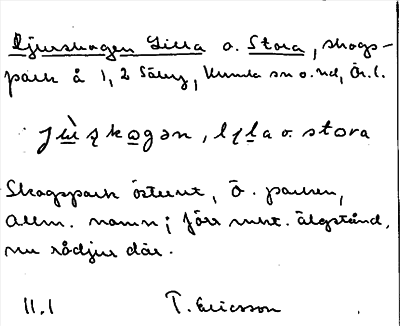 Djurskogen Lilla o. Stora, skogs-
park å 1, 2 Säby, Kumla sn o. hd, Ör. l.
jùʂkogən, lɩla o. stora
Skogspark österut, Ö. parken,
Allm. namn; förr mkt. älgstånd,
nu rådjur där.
11.1 T. Ericsson